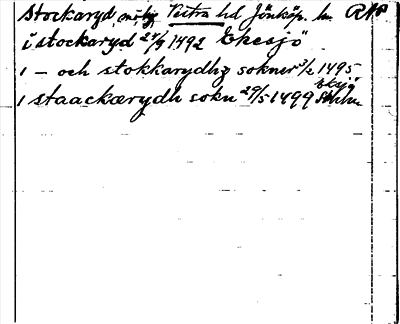 Stockaryd, Vestra hd Jönköp. ln RAP
i stockaryd 27/9 1492 Ekesjö
i – och stokkarydhz sokner 3/2 1495 Eksjö
i staackærydh sokn 29/5 1499 Sthlm